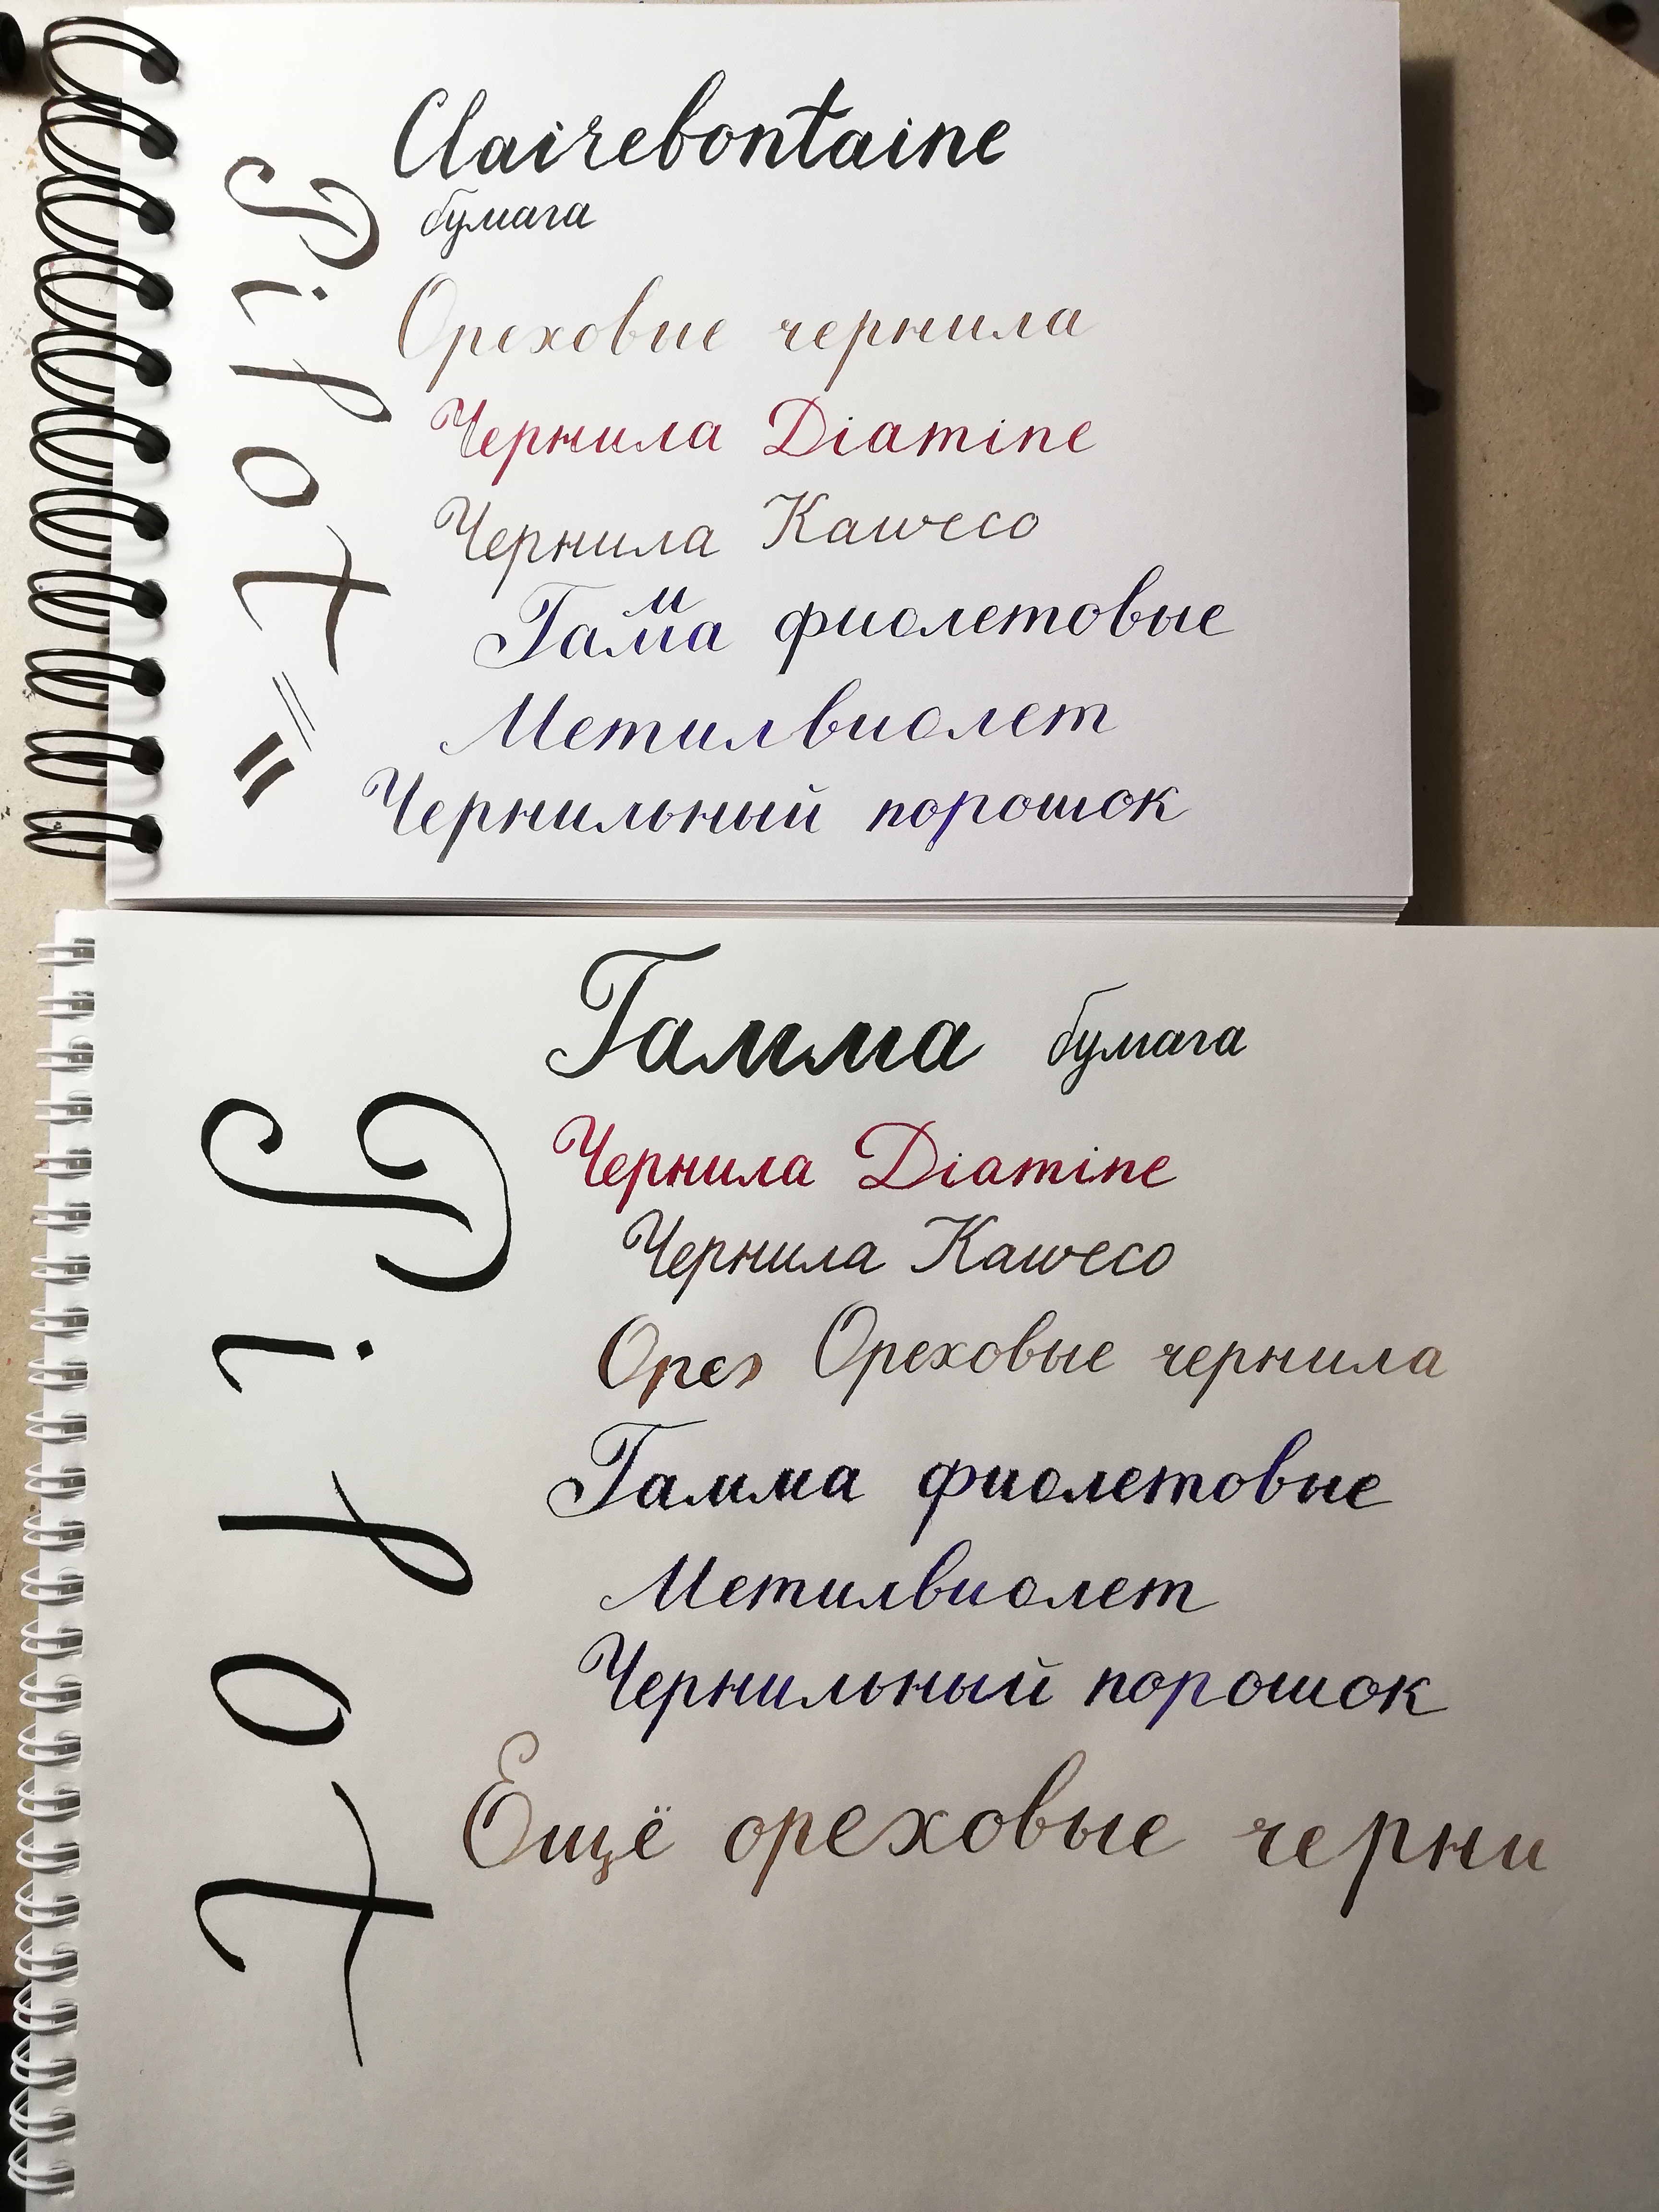 Clairebontaine
бумага
Ореховые чернила
Чернила Diamine
Чернила Kaweco
Гама фиолетовые
м
Метилвиолет
Чернильный порошок
Pilot
Гамма бумага
Чернила Diamine
Чернила Kaweco
Орех Ореховые чернила
Гамма фиолетовые
Метилвиолет
Чернильный порошок
Ещё ореховые черни
Pilot